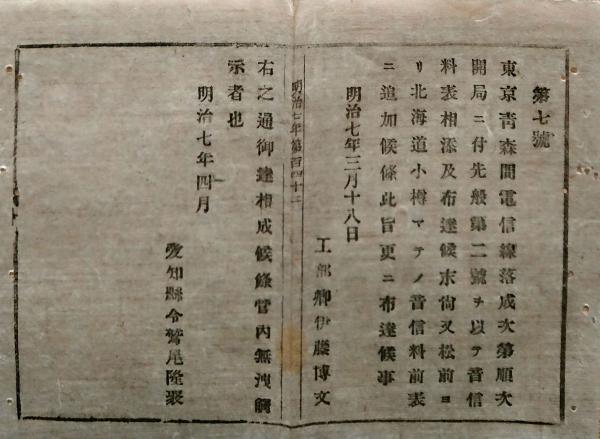 第七號
東京青森間電信線落成次第順次
開局ニ付先般第二號ヲ以テ音信
料表相添及布達候末尚又松前ヨ
リ北海道小樽マテノ音信料前表
ニ追加候條此旨更ニ布達候事
明治七年三月十八日
工部卿伊藤博文
明治七年第百四十二
右之通御達相成候條管内無洩觸
示者也
明治七年四月
愛知縣令鷲尾隆聚